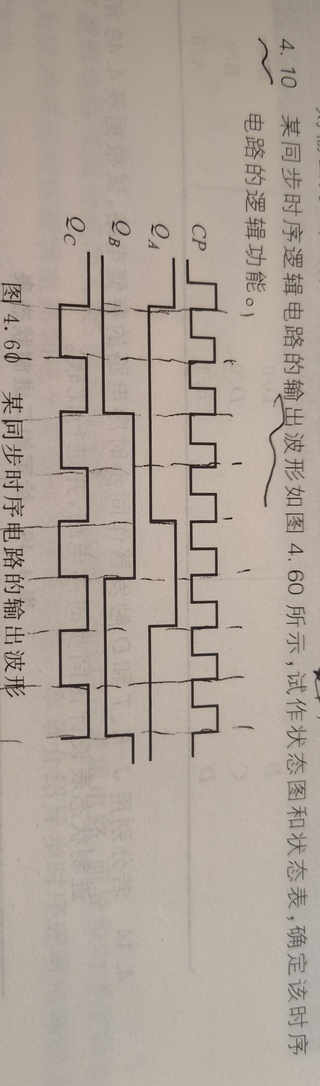 4.10 某同步时序逻辑电路的输出波形如图 4.60 所示,试作状态图和状态表,确定该时序
电路的逻辑功能。
CP
QA
QB
QC
图 4.60 某同步时序电路的输出波形